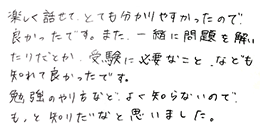 楽しく話せて、とても分かりやすかったので、
良かったです。また、一緒に問題を解い
たりだとか、受験に必要なこと、なども
知れて良かったです。
勉強のやり方など、よく知らないので、
もっと知りたいなと思いました。